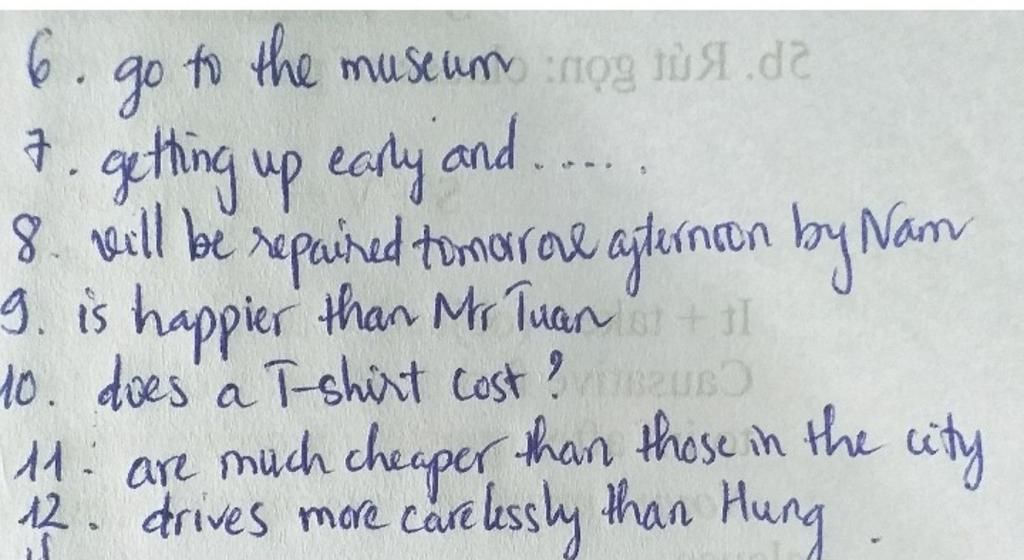 6. go to the museum
7. getting up early and .....
8. will be repaired tomorrow afternoon by Nam
9. is happier than Mr Tuan
10. does a T-shirt cost?
11. are much cheaper than those in the city
12. drives more carelessly than Hung